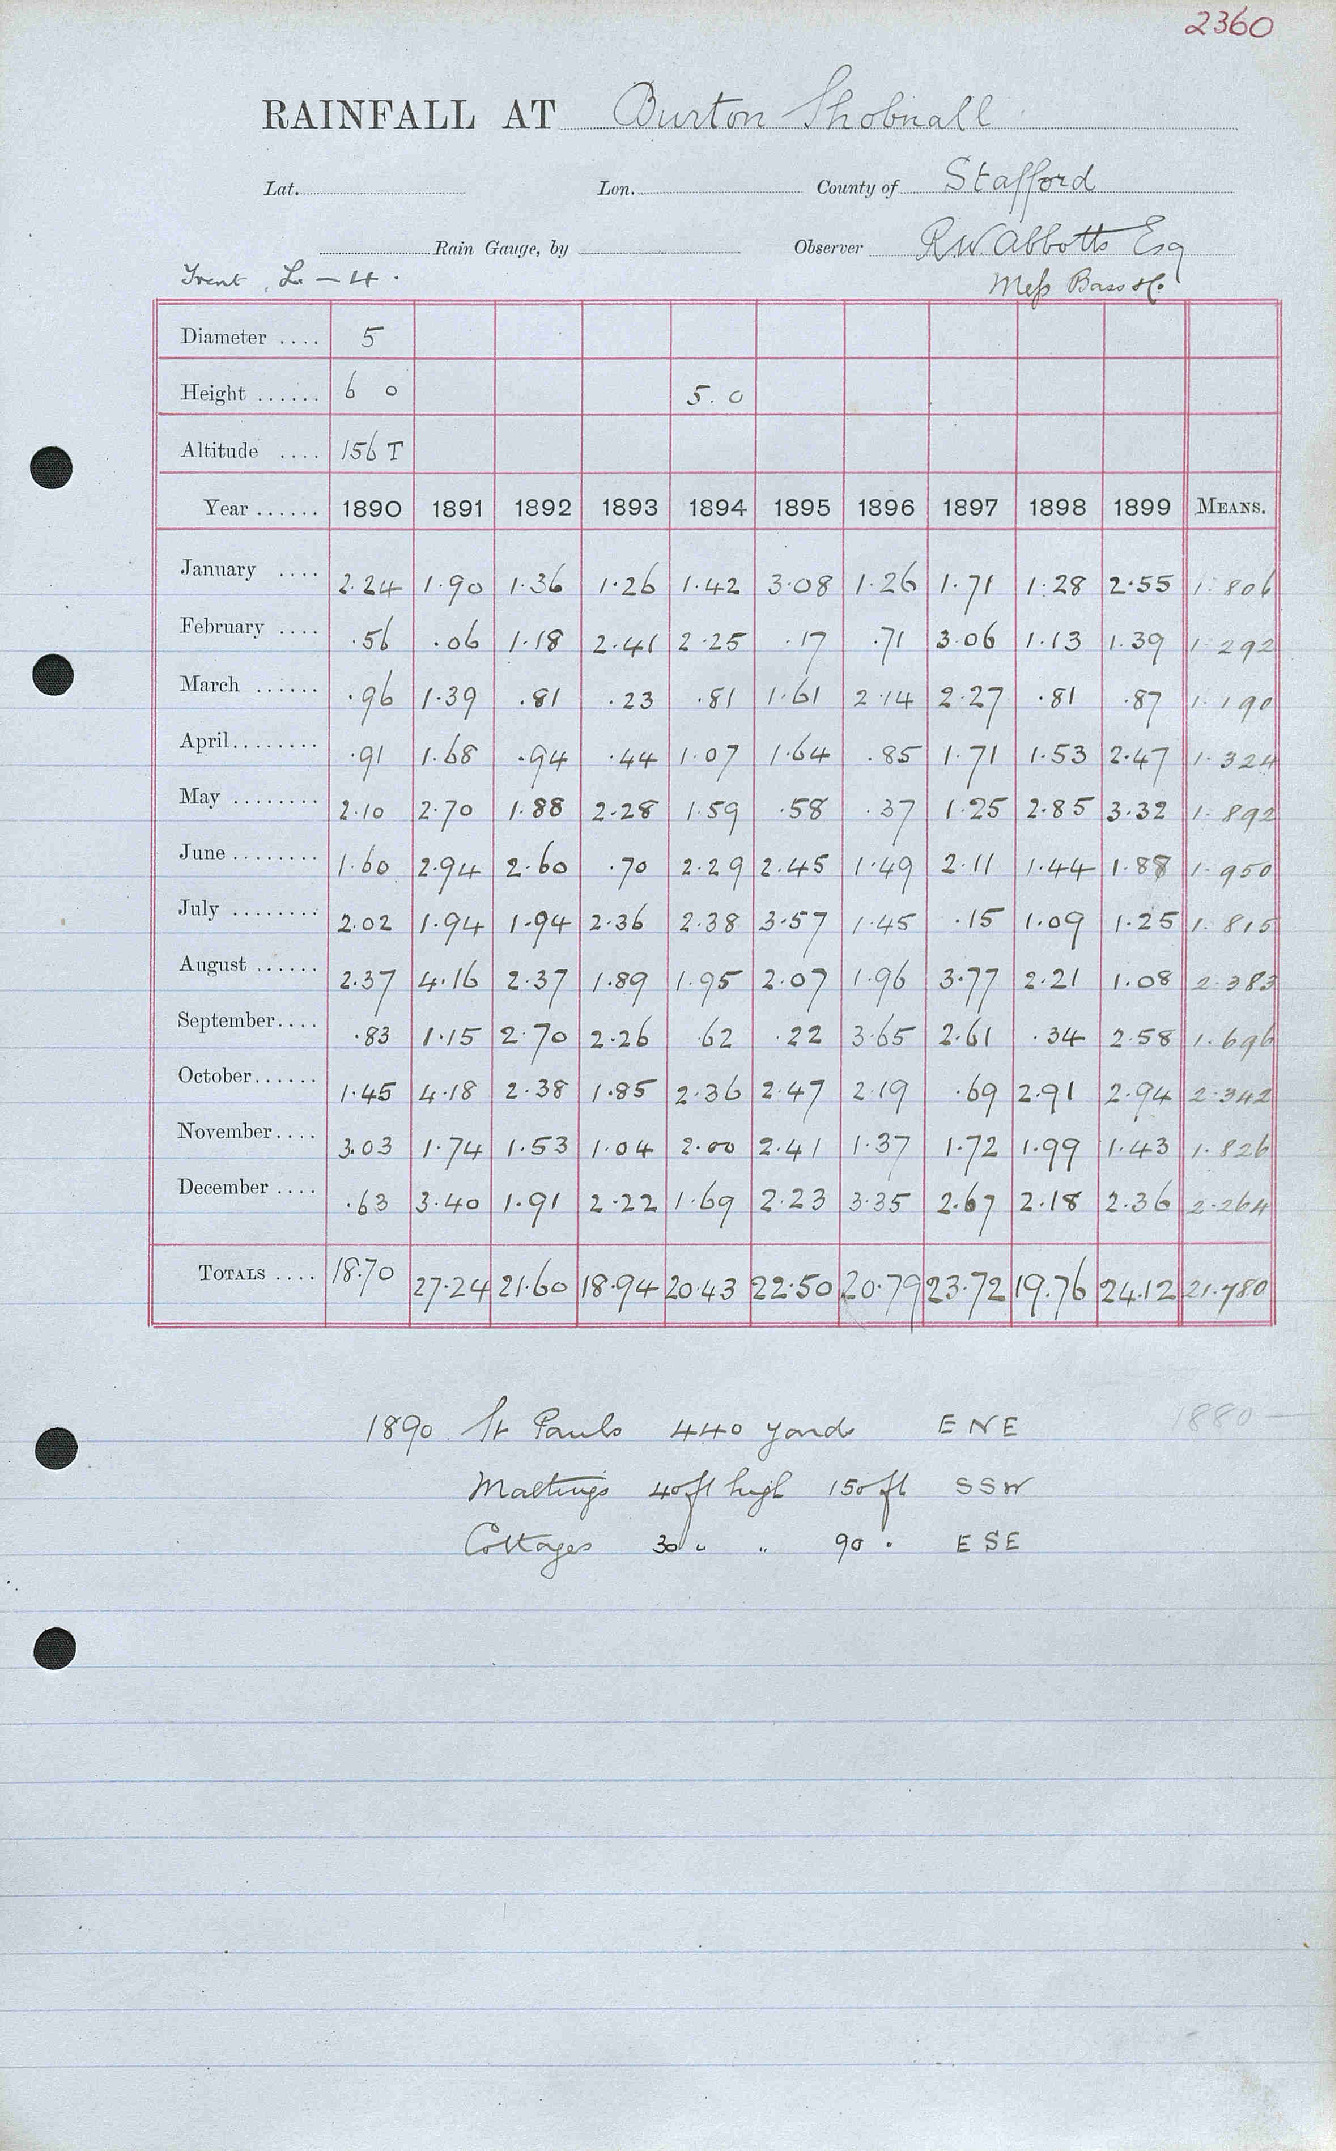 2360
RAINFALL AT Burton Shobnall
Lat. Lon. County of Stafford
Rain Gauge, by Observer R W Abbotts Esq
Trent L – 4. Mess Bass & Co
Diameter .... 5
Height ...... 6 0 5.0
Altitude .... 156 T
Year ...... 1890 1891 1892 1893 1894 1895 1896 1897 1898 1899 MEANS.
January .... 2.24 1.90 1.36 1.26 1.42 3.08 1.26 1.71 1.28 2.55 1.806
February .... .56 .06 1.18 2.41 2.25 .17 .71 3.06 1.13 1.39 1.292
March ...... .96 1.39 .81 .23 .81 1.61 2.14 2.27 .81 .87 1.190
April........ .91 1.68 .94 .44 1.07 1.64 .85 1.71 1.53 2.47 1.324
May ........ 2.10 2.70 1.88 2.28 1.59 .58 .37 1.25 2.85 3.32 1.892
June ........ 1.60 2.94 2.60 .70 2.29 2.45 1.49 2.11 1.44 1.88 1.950
July ........ 2.02 1.94 1.94 2.36 2.38 3.57 1.45 .15 1.09 1.25 1.815
August ...... 2.37 4.16 2.37 1.89 1.95 2.07 1.96 3.77 2.21 1.08 2.383
September.... .83 1.15 2.70 2.26 .62 .22 3.65 2.61 .34 2.58 1.696
October...... 1.45 4.18 2.38 1.85 2.36 2.47 2.19 .69 2.91 2.94 2.342
November.... 3.03 1.74 1.53 1.04 2.00 2.41 1.37 1.72 1.99 1.43 1.826
December .... .63 3.40 1.91 2.22 1.69 2.23 3.35 2.67 2.18 2.36 2.264
TOTALS .... 18.70 27.24 21.60 18.94 20.43 22.50 20.79 23.72 19.76 24.12 21.780
1890 St Pauls 440 yards ENE 1880 –
Maltings 40 ft high 150 ft SSW
Cottages 30 " " 90 " ESE